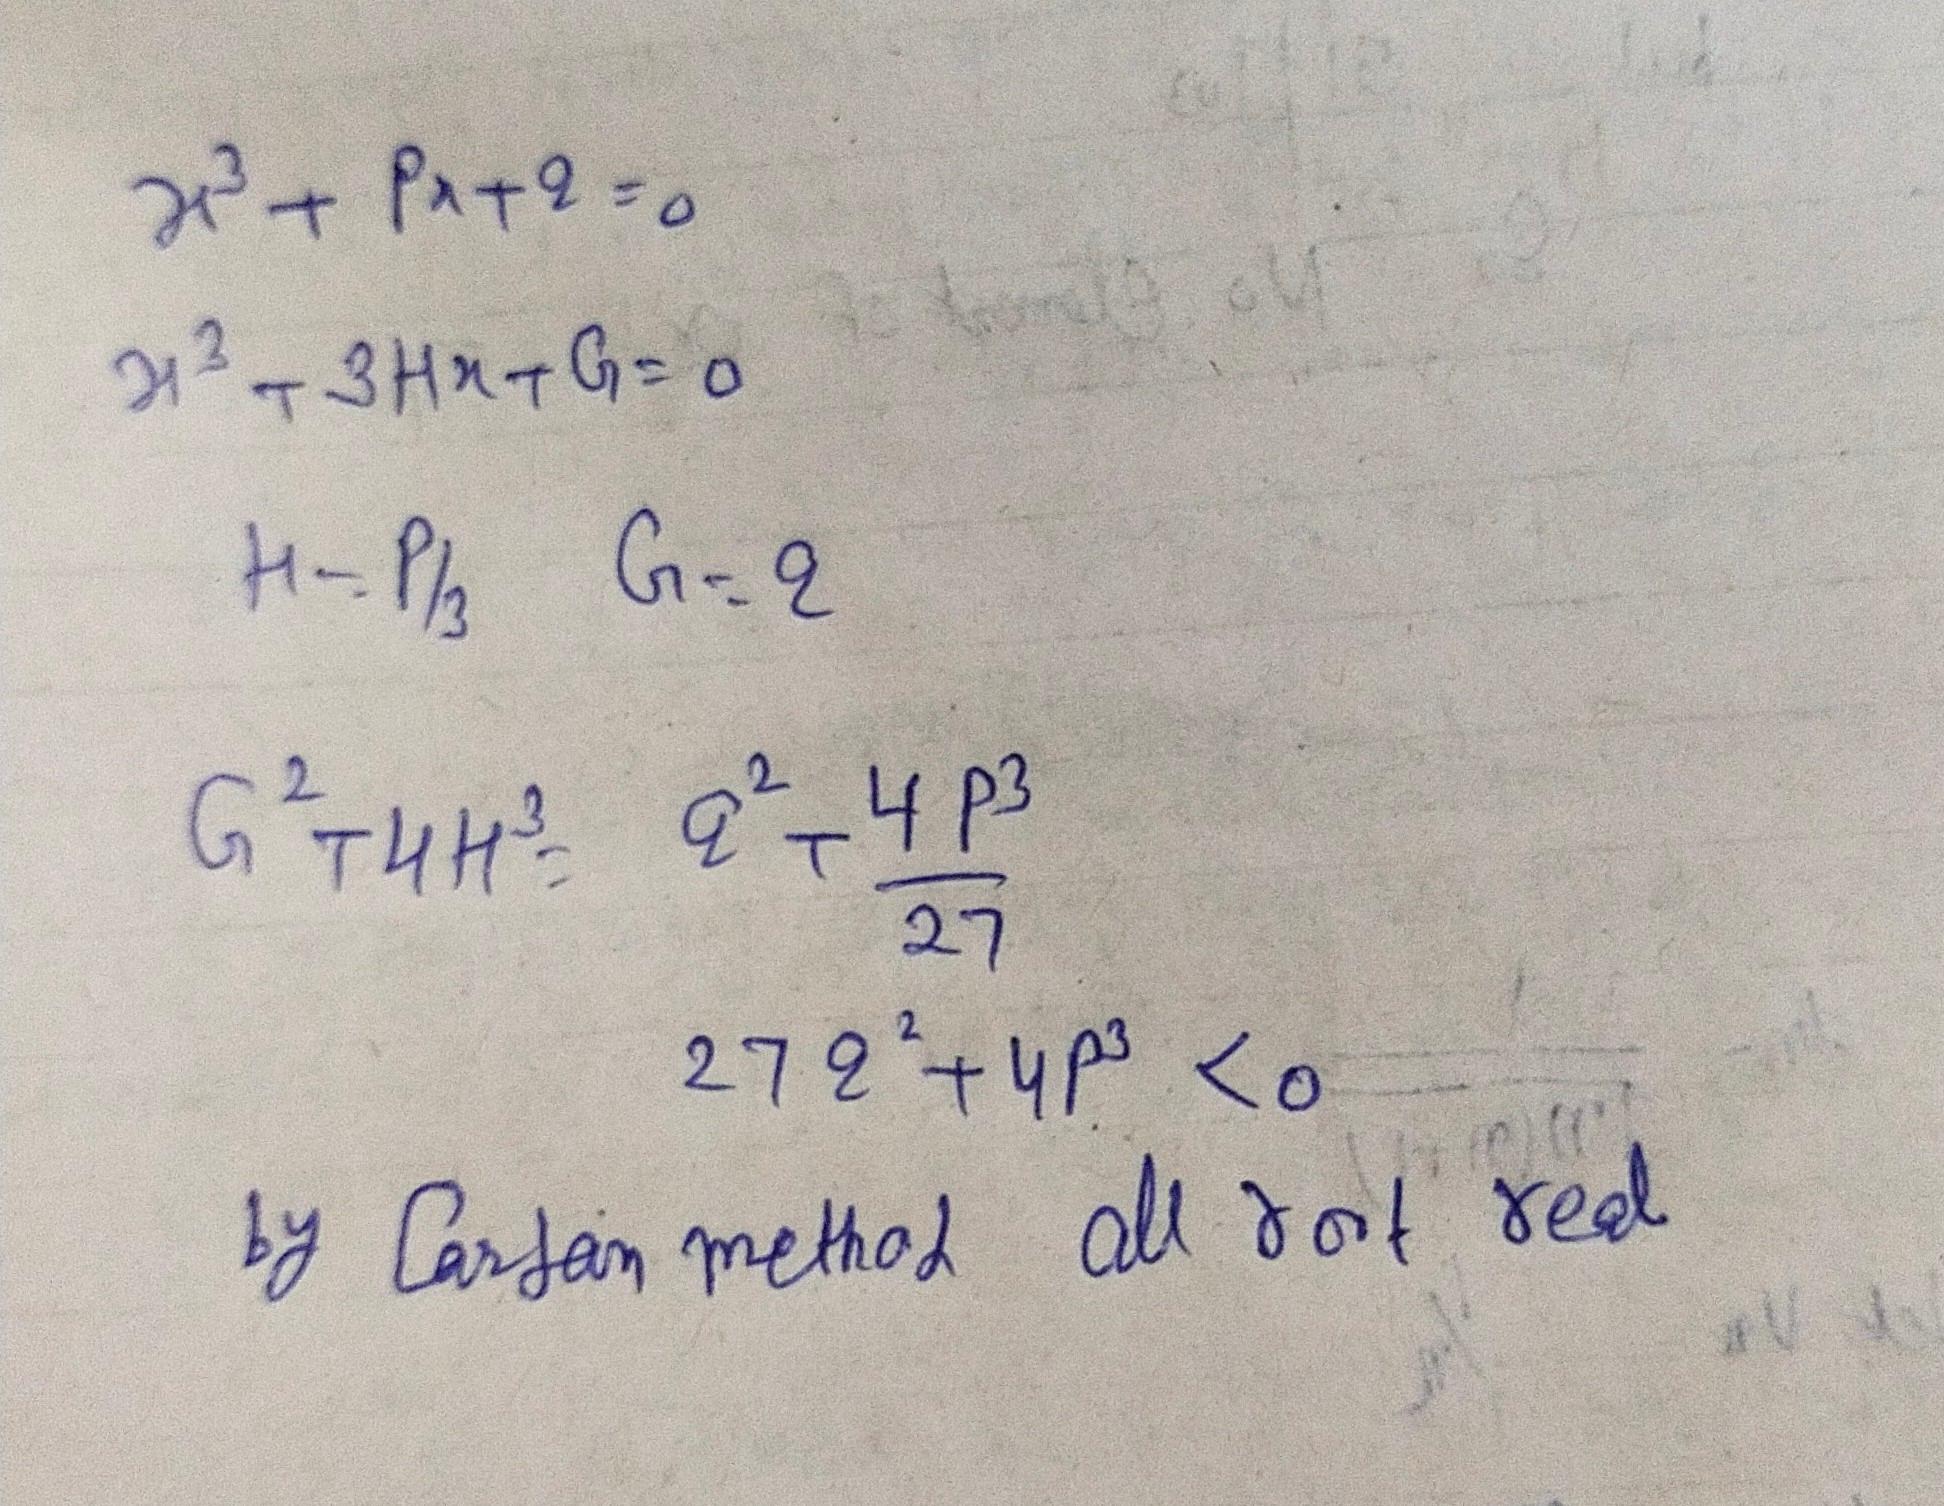 x³ + Px + q = 0
x³ + 3Hx + G = 0
H = P/3 G = q
G² + 4H³ = q² + 4P³/27
27q² + 4P³ < 0
by Cardan method all root real